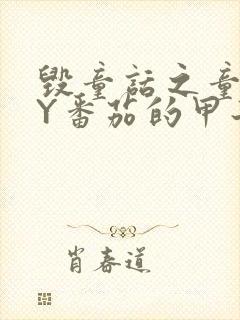 毁童话之童
Y番茄的甲
肖春道